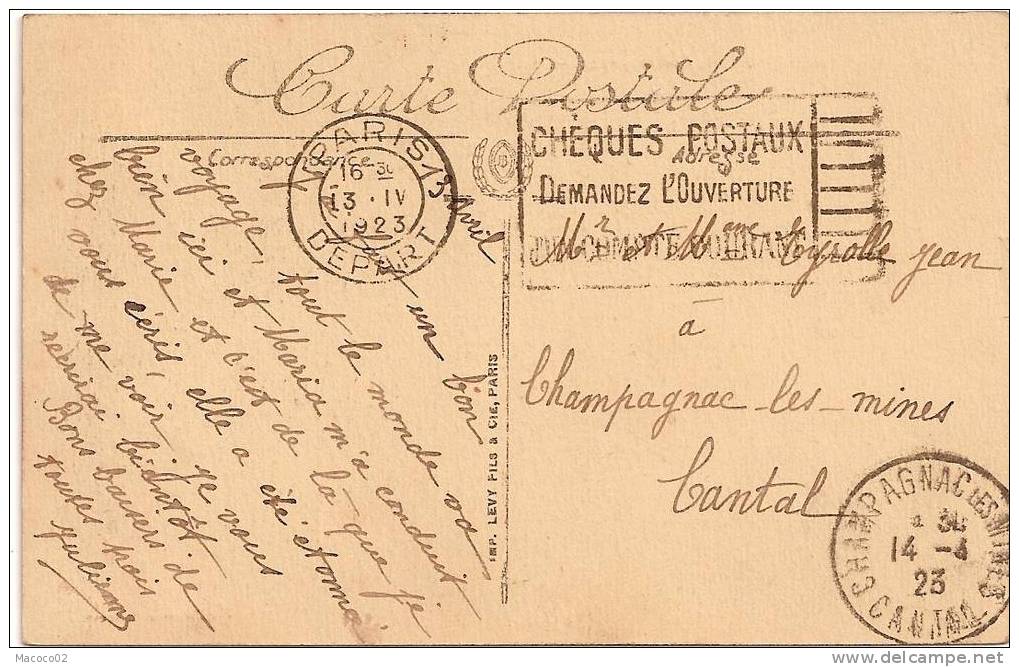 Carte Postale
Correspondance
Adresse
PARIS 1
16 30
13 · IV
1923
DEPART
CHÈQUES POSTAUX
DEMANDEZ L'OUVERTURE
D'UN COMPTE COURANT
13 Avril
un bon
voyage, tout le monde va
bien ici et Maria m'a conduit
chez Marie et c'est de la que je
vous écris, elle a été étonnée
de me voir je vous
bientôt.
Bons baisers de
toutes trois
Julienne
Mr et Mme Jean
à
Champagnac-les-mines
Cantal
IMP. LEVY FILS & CIE, PARIS
CHAMPAGNAC LES MINES
30
14 -4
23
CANTAL
Macoco02
delcampe.net